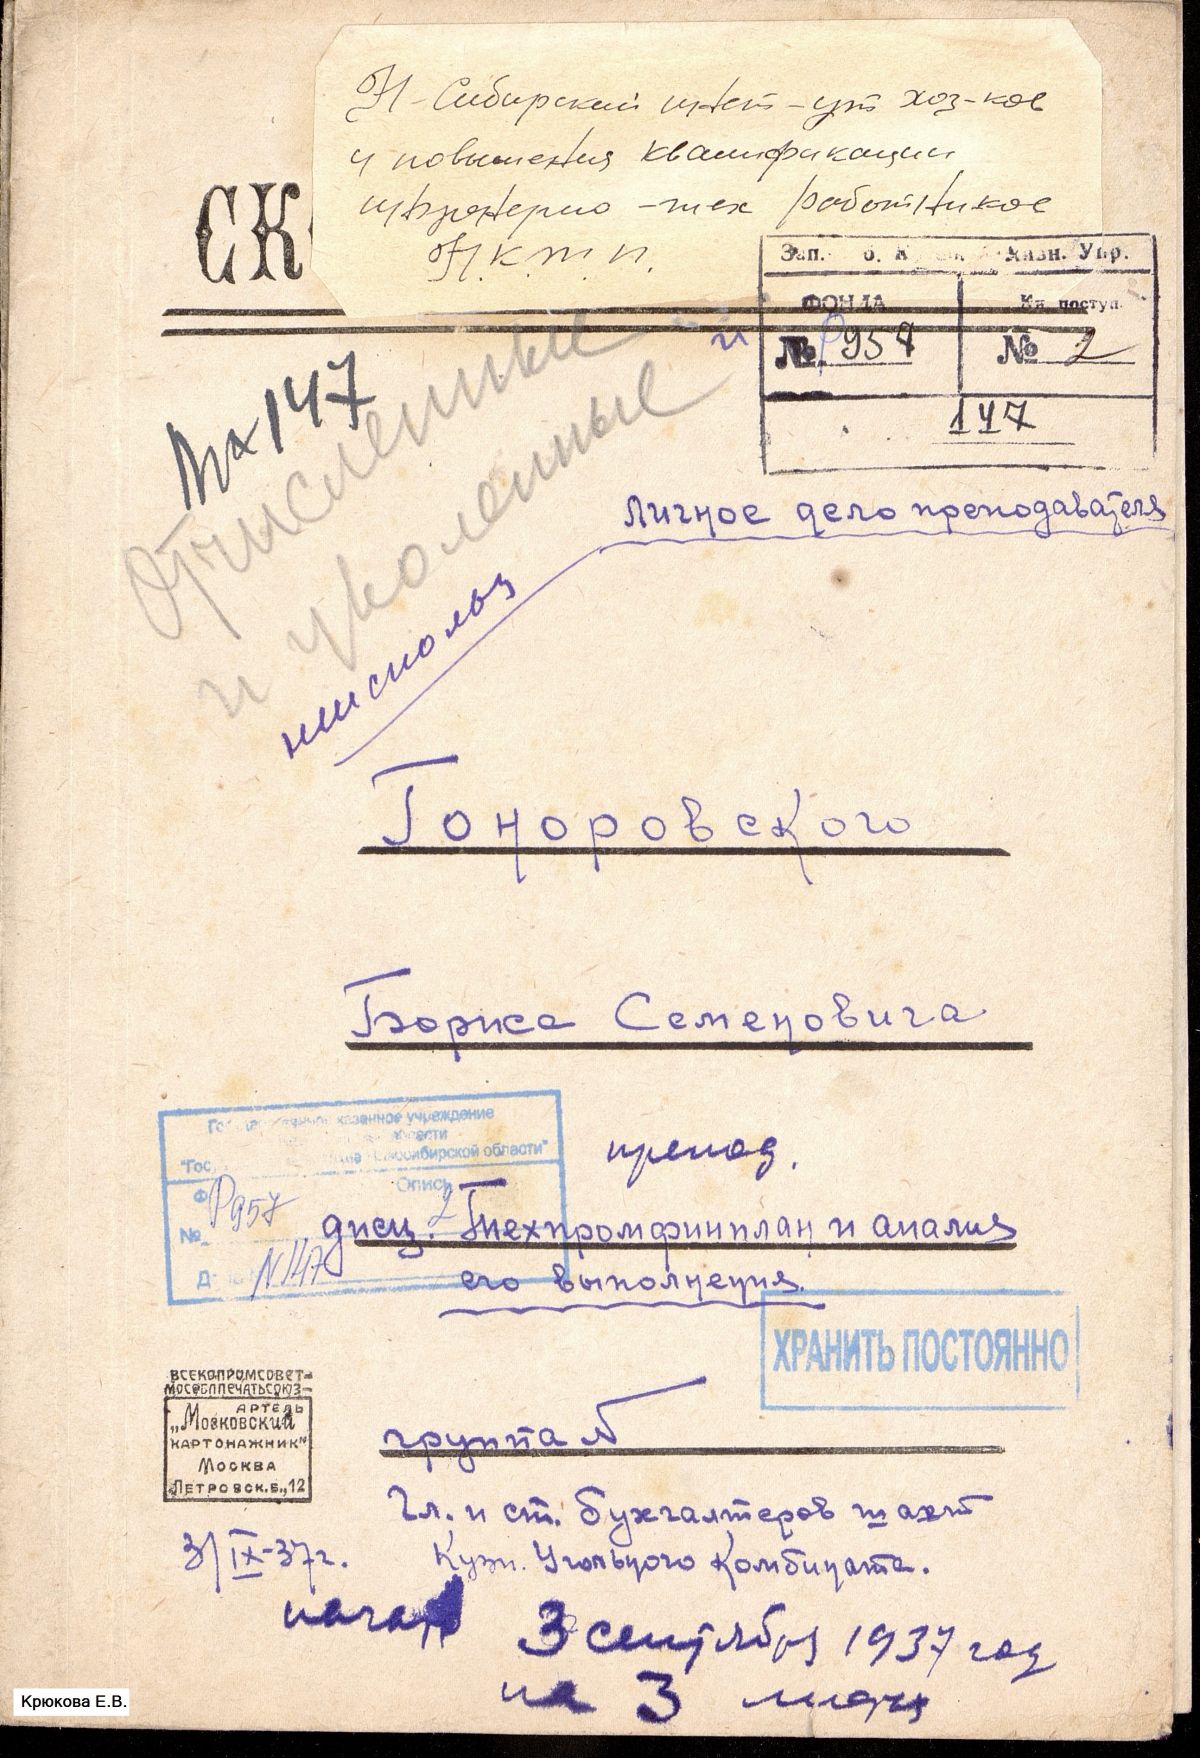 Н-Сибирский инст-ут хоз-ков
и повышения квалификации
инженерно-тех работников
Н.К.Т.П.
СК
Зап. Упр.
ФОНДА Кн. поступ.
№ Р957 № 2
147
147
Отчисленные
и уволенные
Личное дело преподавателя
Гоноровского
Бориса Семеновича
препод.
Государственное казенное учреждение
Новосибирской области"
Опись
Ф
№ Р957 2
N147
дисц. Техпромфинплан и анализ
его выполнения.
ХРАНИТЬ ПОСТОЯННО
ВСЕКОПРОМСОВЕТ-
МОСОБЛПЕЧАТЬСОЮЗ-
АРТЕЛЬ
„Московский
КАРТОНАЖНИК"
МОСКВА
ПЕТРОВСК.Б.,12
группа №
Гл. и ст. бухгалтеров шахт
3/IX-37г. Кузн. Угольного Комбината.
начал 3 сентября 1937 год
на 3
Крюкова Е.В.